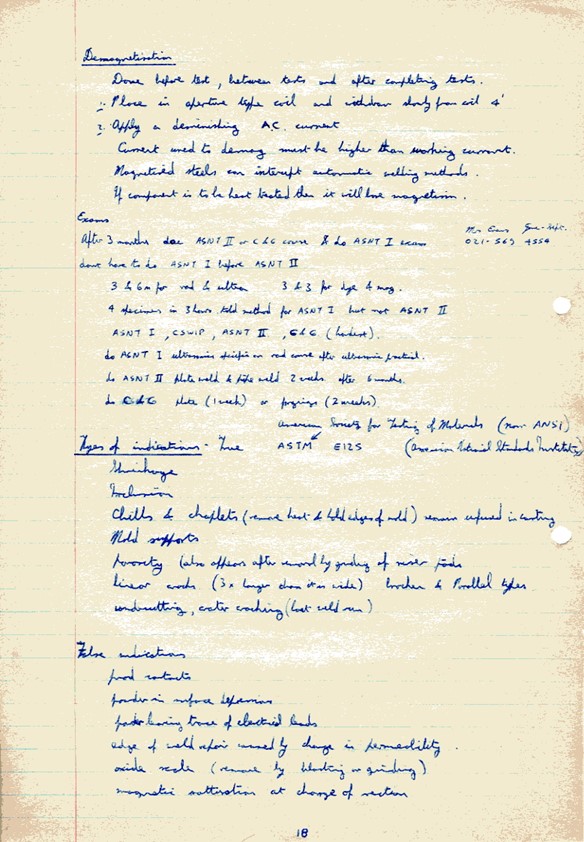 Demagnetisation
Done before test, between tests and after completing tests.
1. Place in aperture type coil and withdraw slowly from coil 4'
2. Apply a deminishing AC. current
Current used to demag must be higher than working current.
Magnetised steels can interupt automatic welding methods.
If component is to be heat treated then it will lose magnetism.
Exams
After 3 months doe ASNT II or C&G course & do ASNT I exam
Mrs Evans
021-569 4554
dont have to do ASNT I before ASNT II
3 & 6m for rad & ultra 3 & 3 for dye & mag.
4 specimens in 3 hours told method for ASNT I but not ASNT II
ASNT I, CSWIP, ASNT II, C&G (hardest).
do ASNT I ultrasonics or rad course after ultrasonic
do ASNT II plate weld & pipe weld 2 weeks after 6 months.
do C&G plate (1 week) or forgings (2 weeks)
american Society for Testing of Materials (now ANSI)
Types of indications - True ASTM E125 (american National Standards Institute)
Shrinkage
Inclusion
Chills & chaplets (remove heat & hold edges of mold) remain unfused in casting
Mold supports
porosity (also appears after removal by grinding of
linear cracks (3x longer than it is wide) broken & Parallel types
undercutting, crater cracking (last weld run)
False indications
prod contacts
powder in surface depressions
powder leaving trace of electrical leads
edge of weld repair caused by change in permeability.
oxide scale (remove by blasting or grinding)
magnetic satturation at change of section
18